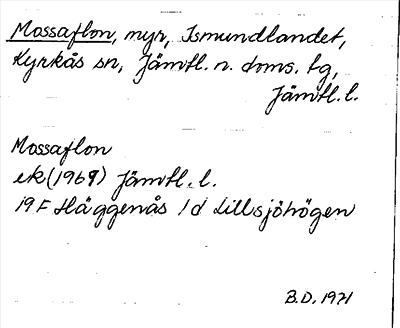 Mossaflon, myr, Ismundlandet,
Kyrkås sn, Jämtl. n. doms. tg,
Jämtl. l.
Mossaflon
ek (1969) Jämtl. l.
19 F Häggenås 1 d Lillsjöhögen
B.D. 1971